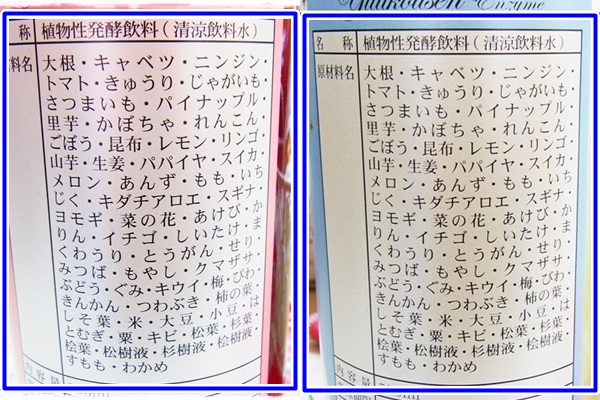 称 植物性発酵飲料(清涼飲料水)
料名 大根・キャベツ・ニンジン・
トマト・きゅうり・じゃがいも・
さつまいも・パイナップル・
里芋・かぼちゃ・れんこん・
ごぼう・昆布・レモン・リンゴ・
山芋・生姜・パパイヤ・スイカ・
メロン・あんず・もも・いち
じく・キダチアロエ・スギナ・
ヨモギ・菜の花・あけび・か
りん・イチゴ・しいたけ・ま
くわうり・とうがん・せり・
みつば・もやし・クマザサ・
ぶどう・ぐみ・キウイ・梅・びわ・
きんかん・つわぶき・柿の葉・
しそ葉・米・大豆・小豆・は
とむぎ・粟・キビ・松葉・杉葉・
桧葉・松樹液・杉樹液・桧樹液・
すもも・わかめ
内容量
Enzyme
名 称 植物性発酵飲料(清涼飲料水)
原材料名 大根・キャベツ・ニンジン・
トマト・きゅうり・じゃがいも・
さつまいも・パイナップル・
里芋・かぼちゃ・れんこん・
ごぼう・昆布・レモン・リンゴ・
山芋・生姜・パパイヤ・スイカ・
メロン・あんず・もも・いち
じく・キダチアロエ・スギナ・
ヨモギ・菜の花・あけび・か
りん・イチゴ・しいたけ・ま
くわうり・とうがん・せり・
みつば・もやし・クマザサ・
ぶどう・ぐみ・キウイ・梅・びわ・
きんかん・つわぶき・柿の葉・
しそ葉・米・大豆・小豆・は
とむぎ・粟・キビ・松葉・杉葉・
桧葉・松樹液・杉樹液・桧樹液・
すもも・わかめ
内容量